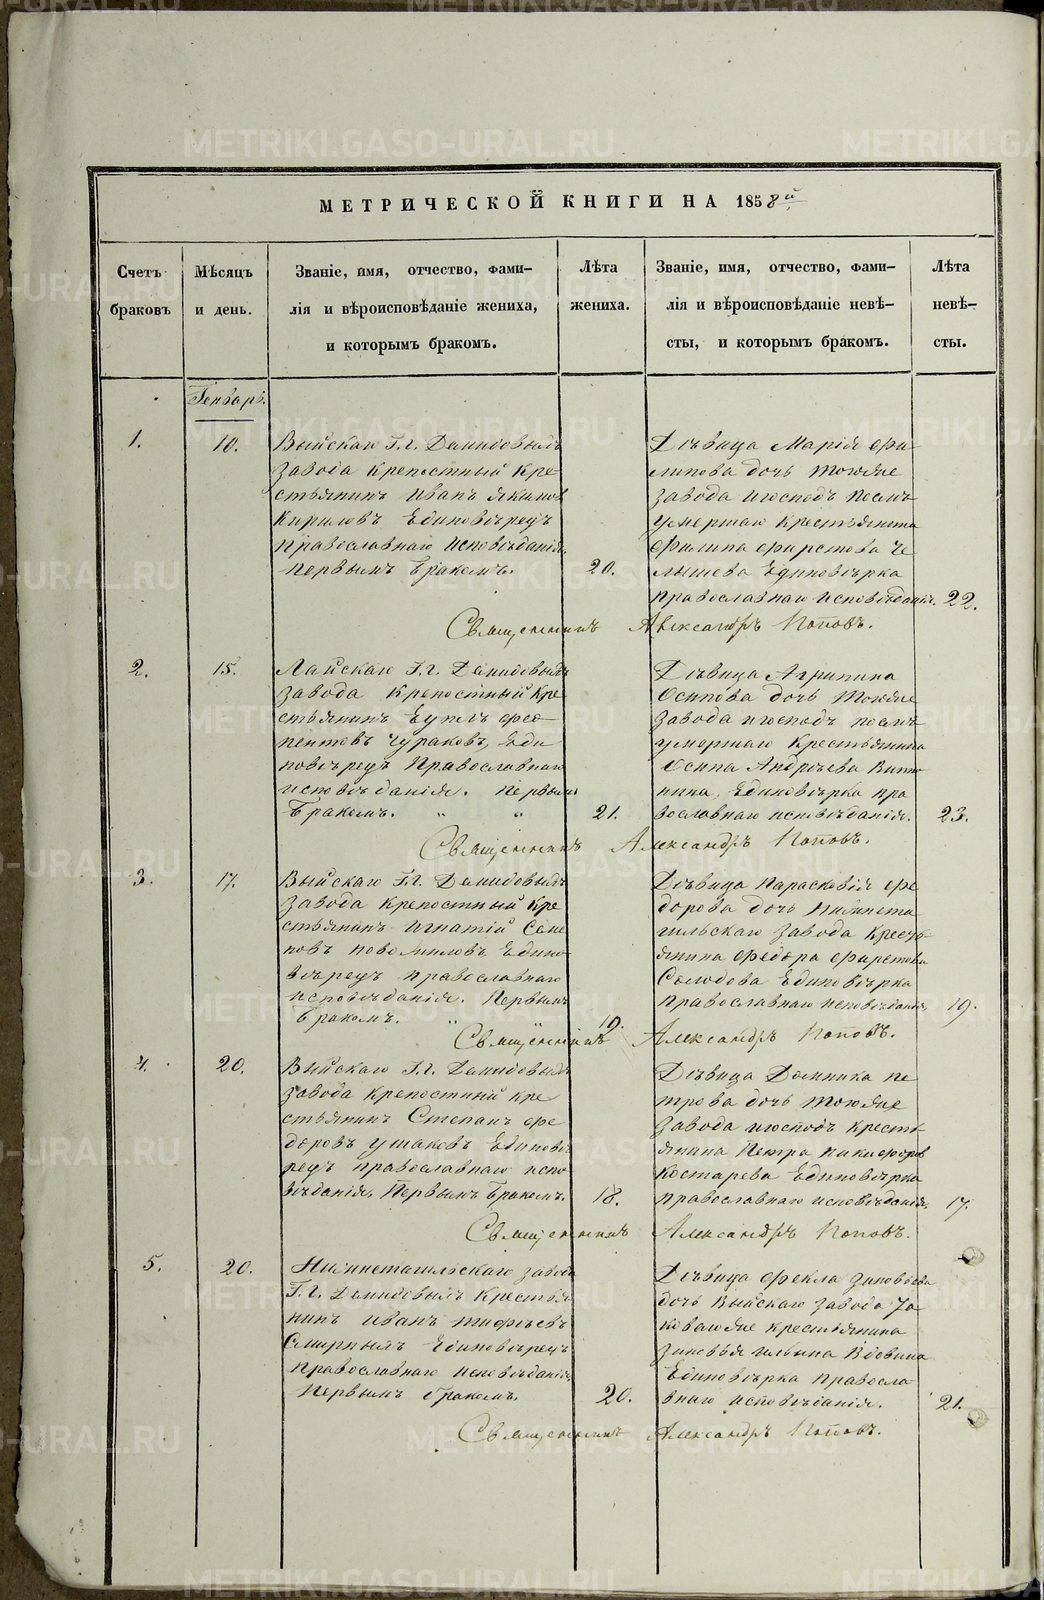 МЕТРИЧЕСКОЙ КНИГИ НА 1858й
Счетъ
браковъ
Мѣсяцъ
и день.
Званіе, имя, отчество, фами-
лія и вѣроисповѣданіе жениха,
и которымъ бракомъ.
Лѣта
жениха.
Званіе, имя, отчество, фами-
лія и вѣроисповѣданіе невѣ-
сты, и которымъ бракомъ.
Лѣта
невѣ-
сты.
Генварь.
1.
10.
Выйскаго Г.г. Демидовыхъ
завода крепостный кре
стьянинъ Иванъ Якимов
Кириловъ Единовѣрецъ
православнаго исповѣданія,
первымъ бракомъ.
20.
Дѣвица Марія Фи
липова дочь тогоже
завода и господъ послѣ
умершаго крестьянина
Филипа Фирстова Че
лышева Единовѣрка
православнаго исповѣданія.
22.
Священникъ Александръ Поповъ.
2.
15.
Лайскаго Г.г. Демидовыхъ
завода крепостный кре
стьянинъ Еуплъ Фео-
пентовъ Чураковъ, Еди
новѣрецъ Православнаго
исповѣданія. Первымъ
бракомъ. " "
21.
Дѣвица Агрипина
Осипова дочь тогоже
завода и господъ послѣ
умершаго крестьянина
Осипа Андрѣева
Единовѣрка пра
вославнаго исповѣданія.
23.
Священникъ Александръ Поповъ.
3.
17.
Выйскаго Г.г. Демидовыхъ
завода крепостный кре
стьянинъ Игнатій Семе
новъ Единo
вѣрецъ православнаго
исповѣданія. Первымъ
бракомъ. " "
19.
Дѣвица Парасковія Фе
дорова дочь Нижнета
гильскаго завода кресть-
янина Федора Фирстова
Солодова Единовѣрка
православнаго исповѣданія,
19.
Священникъ Александръ Поповъ.
4.
20.
Выйскаго Г.г. Демидовыхъ
завода крепостный кре
стьянинъ Степанъ Фе
доровъ Ушаковъ Единовѣ
рецъ православнаго испо
вѣданія, Первымъ бракомъ.
18.
Дѣвица Домника Пе
трова дочь тогоже
завода и господъ кресть-
янина Петра Никифоров
Костарева Единовѣрка
православнаго исповѣданія,
17.
Священникъ Александръ Поповъ.
5.
20.
Нижнетагильскаго завода
Г.г. Демидовыхъ крестья
нинъ Иванъ Тифѣевъ
Смирныхъ Единовѣрецъ
православнаго исповѣданія
первымъ бракомъ.
20.
Дѣвица Фекла Зиновьева
дочь Выйскаго завода та
коваго же крестьянина
Зиновья Ильина Вдовина
Единовѣрка Правосла
внаго исповѣданія.
21.
Священникъ Александръ Поповъ.
METRIKI.GASO-URAL.RU